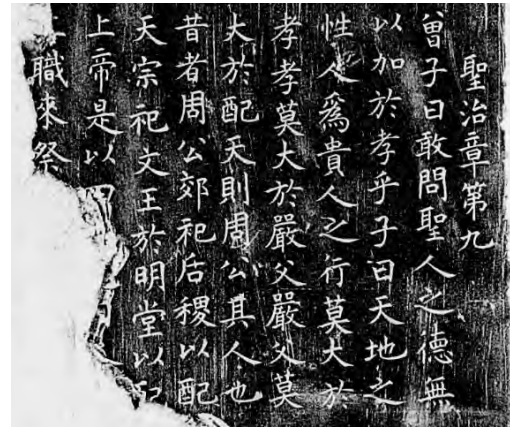 聖治章第九
曾子曰敢問聖人之德無
以加於孝乎子曰天地之
性人爲貴人之行莫大於
孝孝莫大於嚴父嚴父莫
大於配天則周公其人也
昔者周公郊祀后稷以配
天宗祀文王於明堂以配
上帝是以四
職來祭